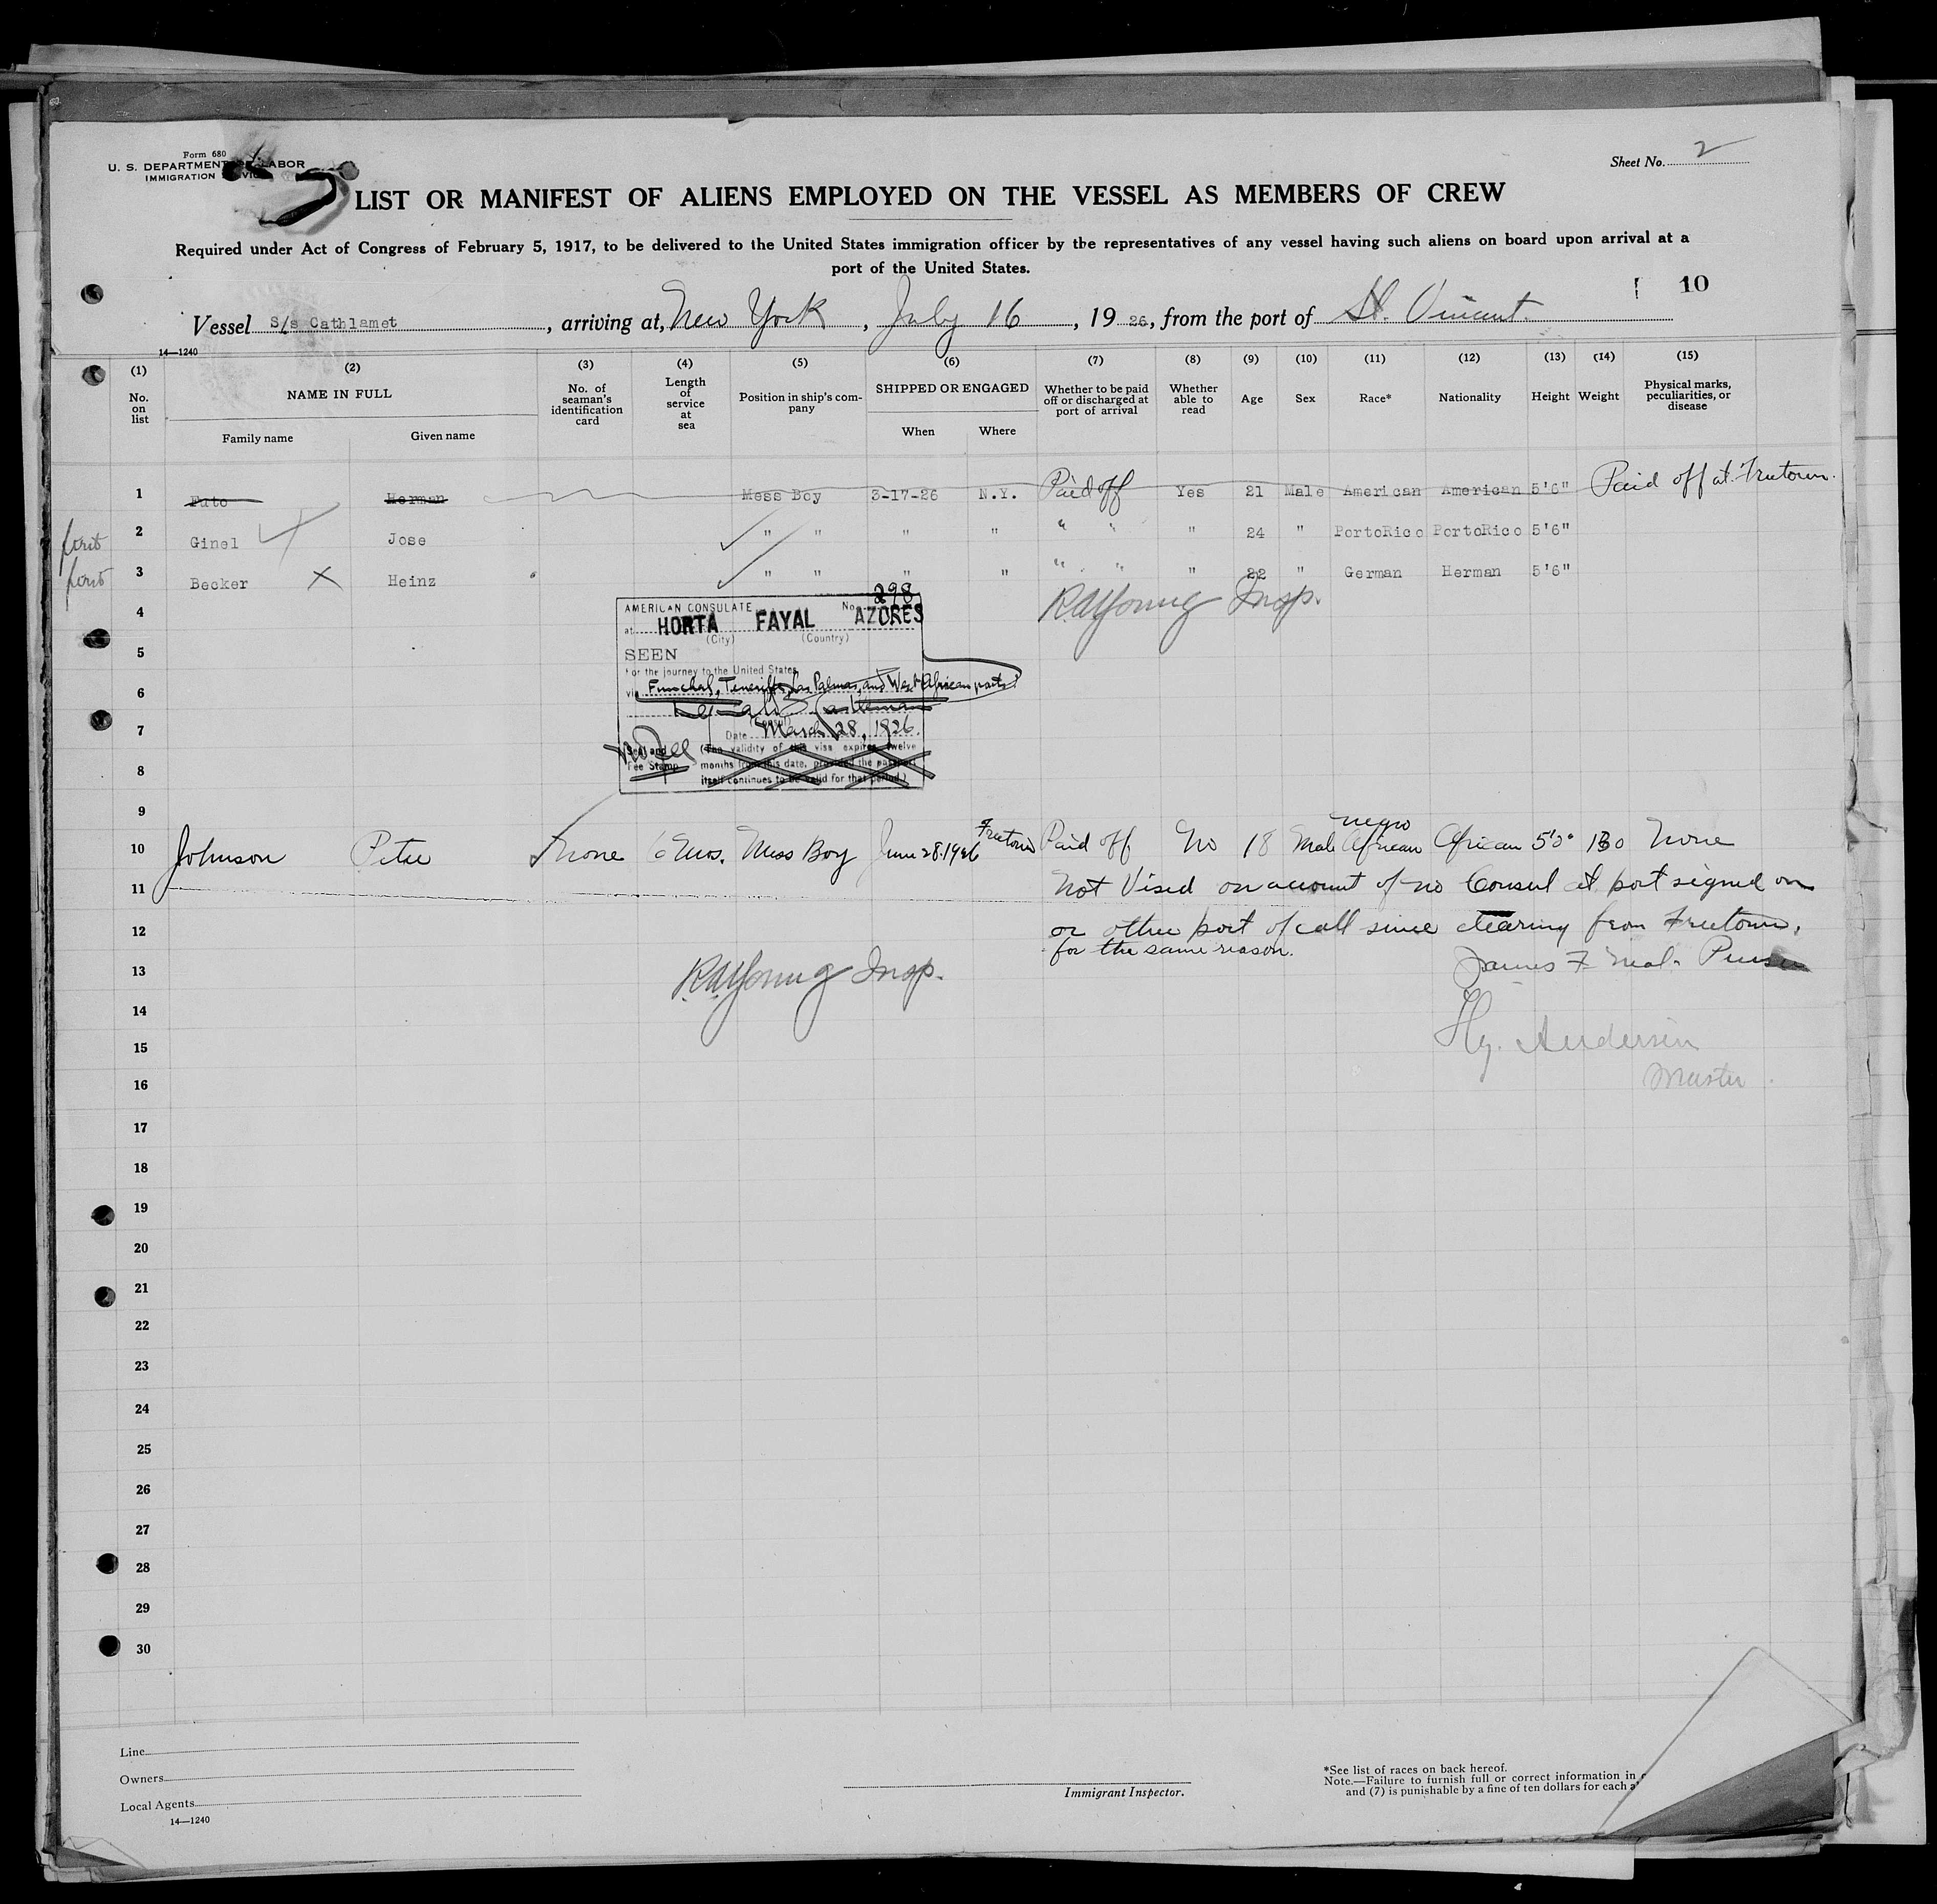 Form 680
U. S. DEPARTMENT OF LABOR
IMMIGRATION SERVICE
Sheet No. 2
LIST OR MANIFEST OF ALIENS EMPLOYED ON THE VESSEL AS MEMBERS OF CREW
Required under Act of Congress of February 5, 1917, to be delivered to the United States immigration officer by the representatives of any vessel having such aliens on board upon arrival at a
port of the United States.
10
Vessel S/s Cathlamet, arriving at, New York, July 16, 1926, from the port of St. Vincent.
14—1240
(1) (2) (3) (4) (5) (6) (7) (8) (9) (10) (11) (12) (13) (14) (15)
No. on list
NAME IN FULL
Family name
Given name
No. of seaman's identification card
Length of service at sea
Position in ship's company
SHIPPED OR ENGAGED
When
Where
Whether to be paid off or discharged at port of arrival
Whether able to read
Age
Sex
Race*
Nationality
Height
Weight
Physical marks, peculiarities, or disease
1 Herman Mess Boy 3-17-26 N.Y. Paid off Yes 21 Male American American 5'6" Paid off at Freetown.
2 Ginel Jose " " " " " " " 24 " PortoRico PortoRico 5'6"
3 Becker X Heinz " " " " " " " 22 " German Herman 5'6"
4
RAYoung Insp.
AMERICAN CONSULATE No. 298
at HORTA FAYAL AZORES
(City) (Country)
5
SEEN
For the journey to the United States
6
via Funchal, Teneriffe, Las Palmas, and West African ports
7
(Consul)
Date March 28, 1926.
Seal and Fee Stamp
(The validity of this visa expires twelve
8
months from this date, provided the passport
itself continues to be valid for that period.)
9
10 Johnson Peter none 6 Mos. Mess Boy June 28-1926 Freetown Paid off No 18 Male negro African African 5'0" 130 None
11 Not Vised on account of no Consul at port signed on
12 or other port of call since clearing from Freetown,
for the same reason.
13 RAYoung Insp. James F. Neal. Purser
14
15 Hy. Andersen
16 Master
17
18
19
20
21
22
23
24
25
26
27
28
29
30
Line
Owners
Local Agents
14—1240
Immigrant Inspector.
*See list of races on back hereof.
Note.—Failure to furnish full or correct information in
and (7) is punishable by a fine of ten dollars for each